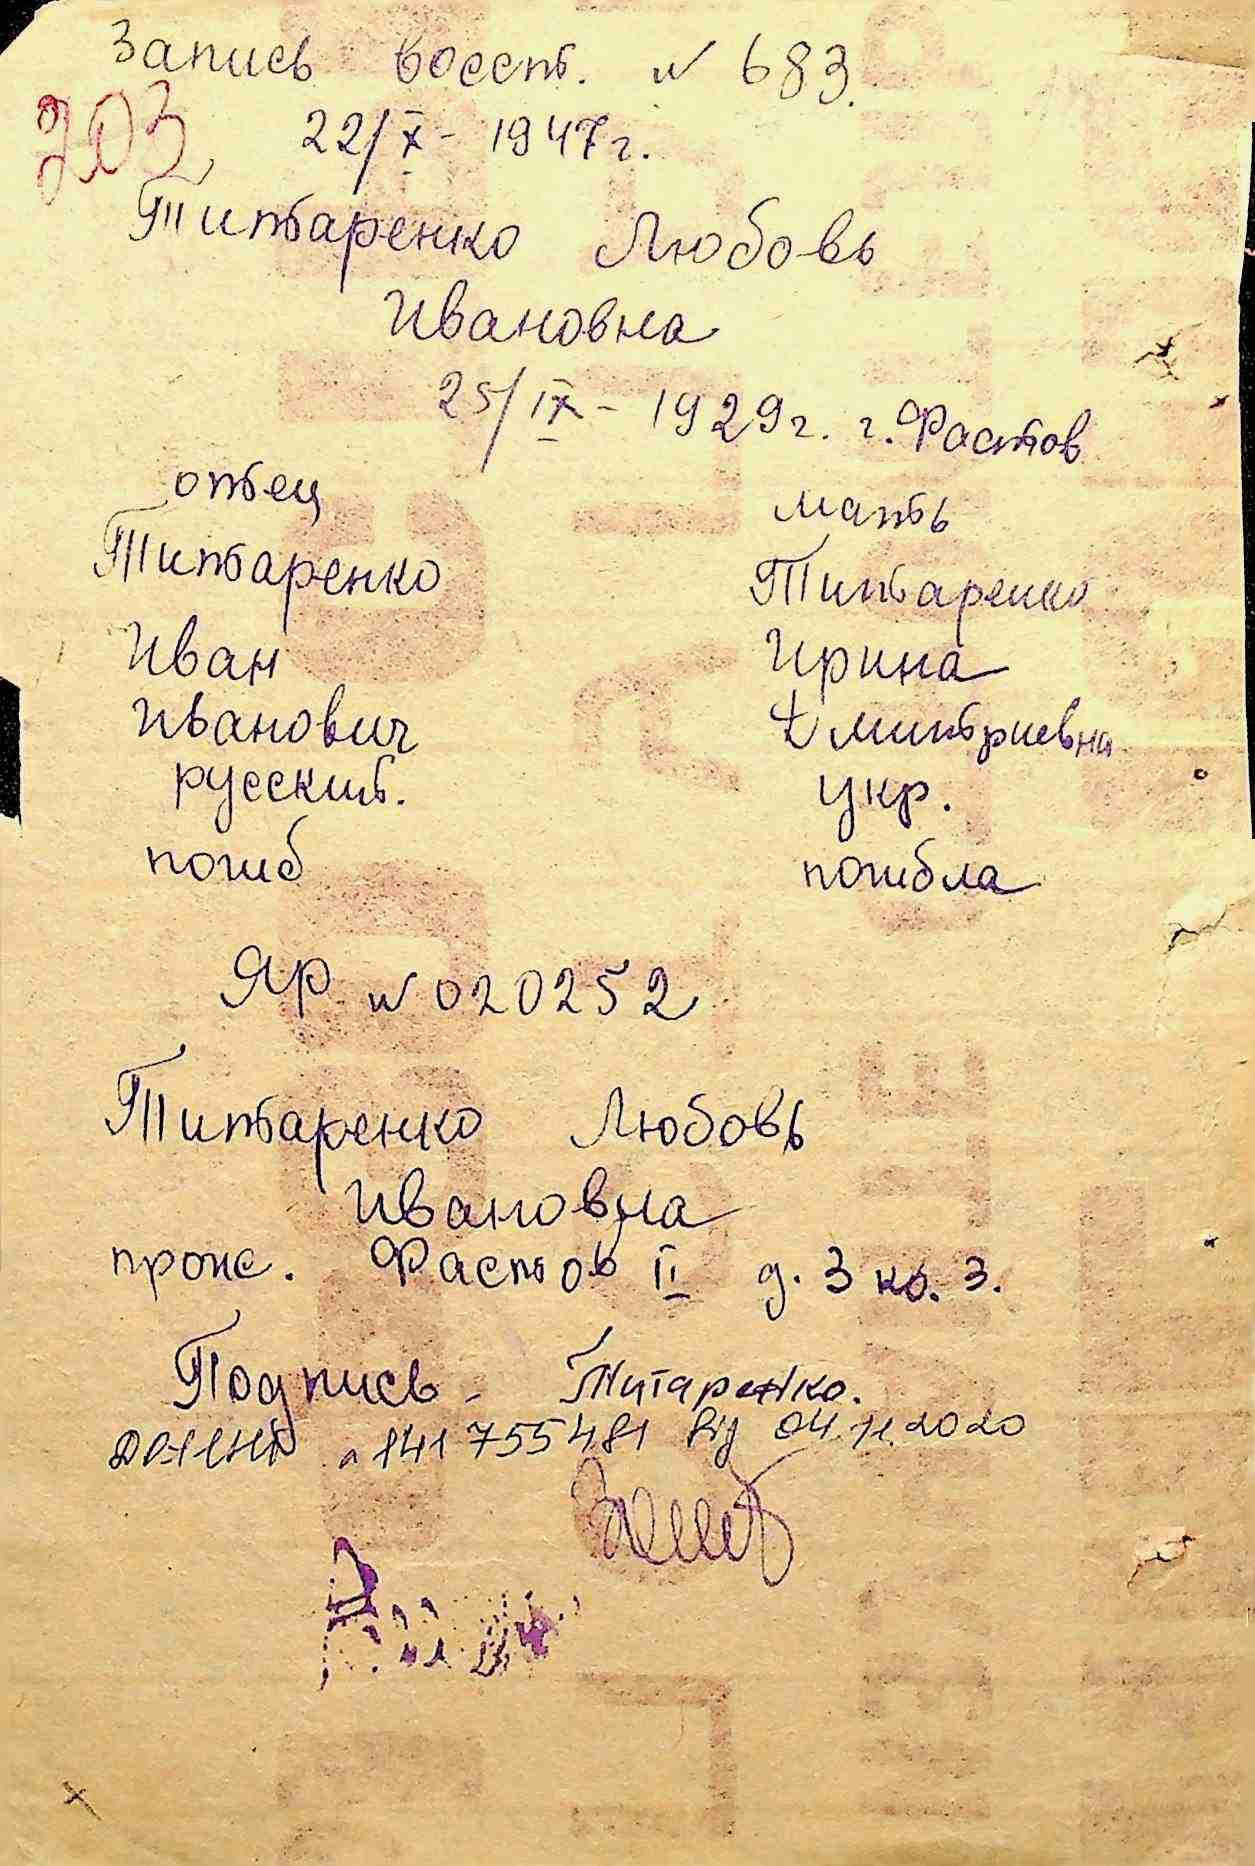 Запись восст. № 683.
203
22/X - 1947 г.
Титаренко Любовь
Ивановна
25/IX - 1929 г. г. Фастов
отец мать
Титаренко Титаренко
Иван Ирина
Иванович Дмитриевна
русский. укр.
погиб погибла
ЯР № 020252
Титаренко Любовь
Ивановна
прож. Фастов II д. 3 кв. 3.
Подпись - Титаренко.
141755481 від 04.11.2020